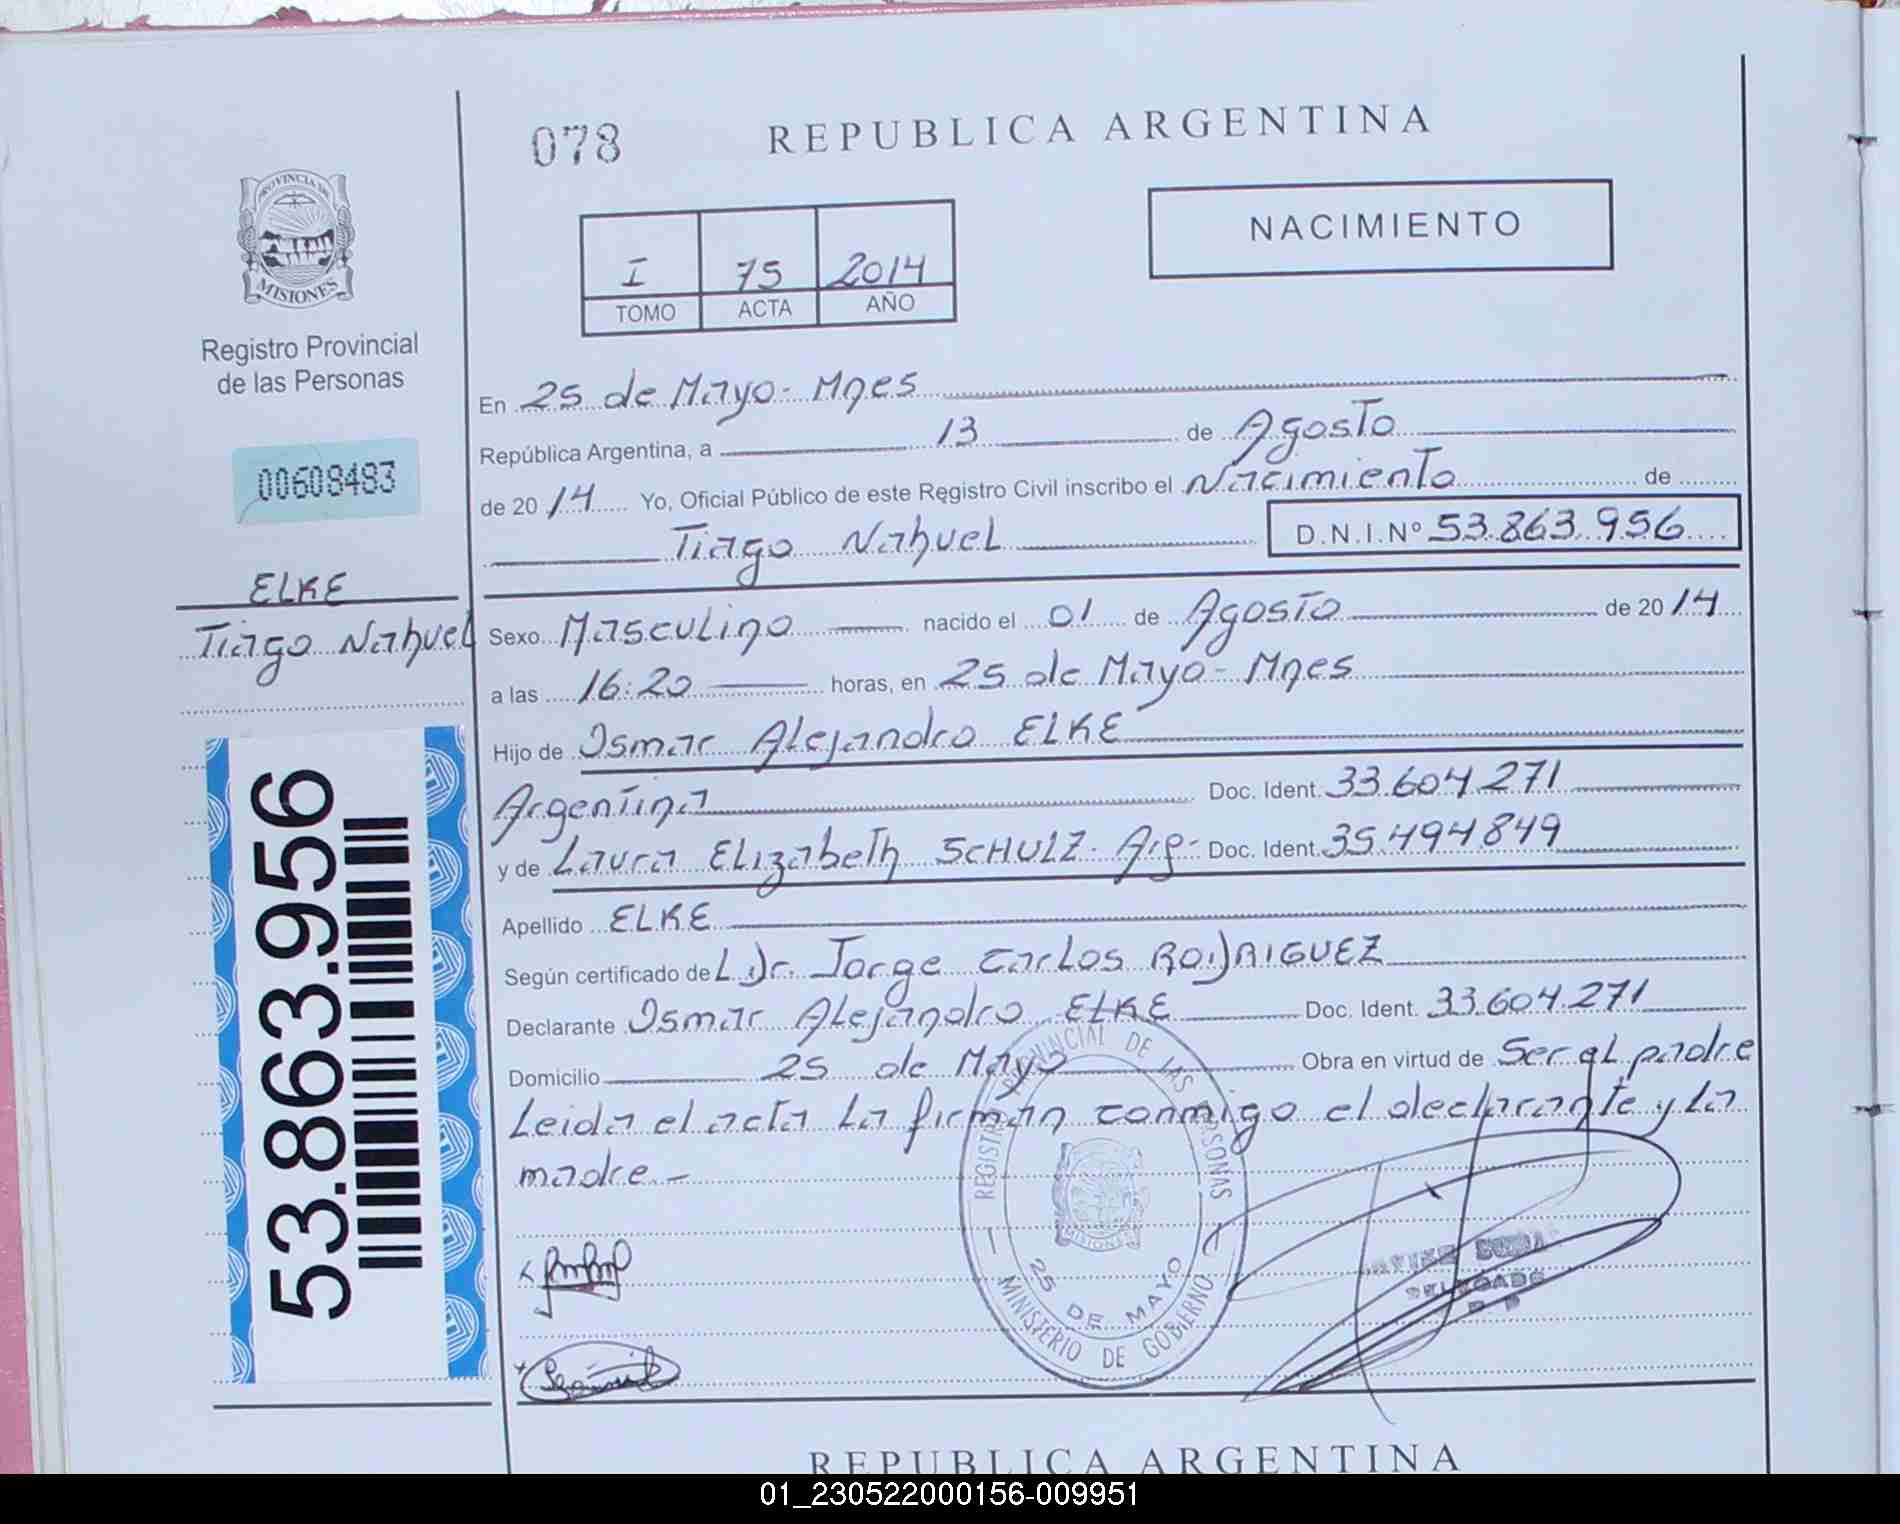 078
REPUBLICA ARGENTINA
PROVINCIA DE
MISIONES
Registro Provincial
de las Personas
00608483
ELKE
Tiago Nahuel
53.863.956
I 75 2014
TOMO ACTA AÑO
NACIMIENTO
En 25 de Mayo - Mnes
República Argentina, a 13 de Agosto
de 2014 Yo, Oficial Público de este Registro Civil inscribo el Nacimiento de
Tiago Nahuel D.N.I.Nº 53.863.956
Sexo Masculino nacido el 01 de Agosto de 2014
a las 16:20 horas, en 25 de Mayo - Mnes
Hijo de Osmar Alejandro ELKE
Argentina Doc. Ident. 33.604.271
y de Laura Elizabeth SCHULZ - Arg - Doc. Ident. 35.494.849
Apellido ELKE
Según certificado de L. Dr. Jorge Carlos RODRIGUEZ
Declarante Osmar Alejandro ELKE Doc. Ident. 33.604.271
Domicilio 25 de Mayo Obra en virtud de Ser el padre
Leida el acta La firman conmigo el declarante y La
madre.-
REGISTRO PROVINCIAL DE LAS PERSONAS
MISIONES
25 DE MAYO
MINISTERIO DE GOBIERNO
DELEGADO
REPUBLICA ARGENTINA
01_230522000156-009951